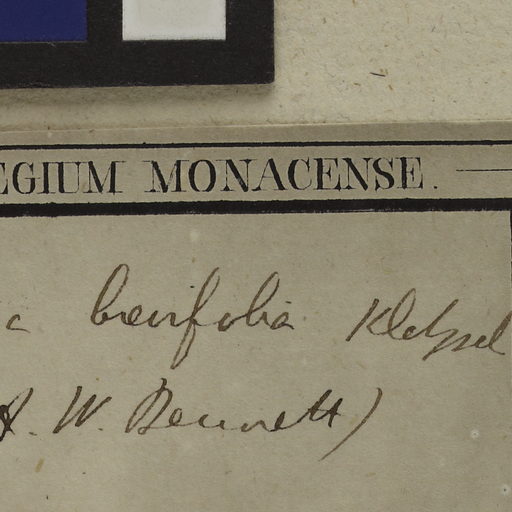 EGIUM MONACENSE.
a brevifolia Klotzsch
A. W. Bennett)